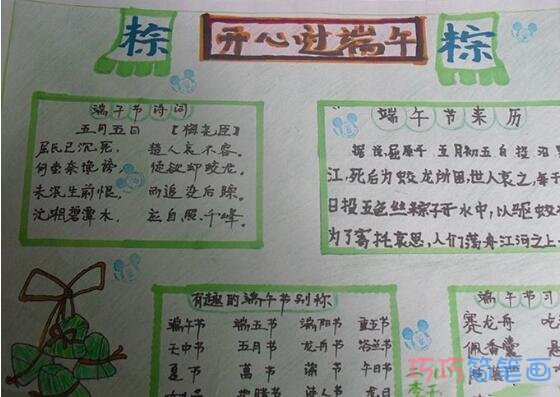 粽
开心过端午
粽
端午节诗词
五月五日 【梅尧臣】
屈氏已沉死， 楚人哀不容。
何尝奈谗谤， 徒欲却蛟龙。
未泯生前恨， 而追没后踪。
沅湘碧潭水， 应自照千峰。
端午节来历
据说屈原于五月初五自投汨
江，死后为蛟龙所困，世人哀之，每于
日投五色丝粽子于水中，以驱蛟
为了寄托哀思，人们荡舟江河之上
有趣的端午节别称
端午节 端五节 端阳节 重五节
天中节 五月节 龙舟节 浴兰节
夏节 菖节 午日节
女儿节 地腊节 诗人节 龙日
李子
端午节习
赛龙舟 吃
佩香囊 悬
巧巧简笔画